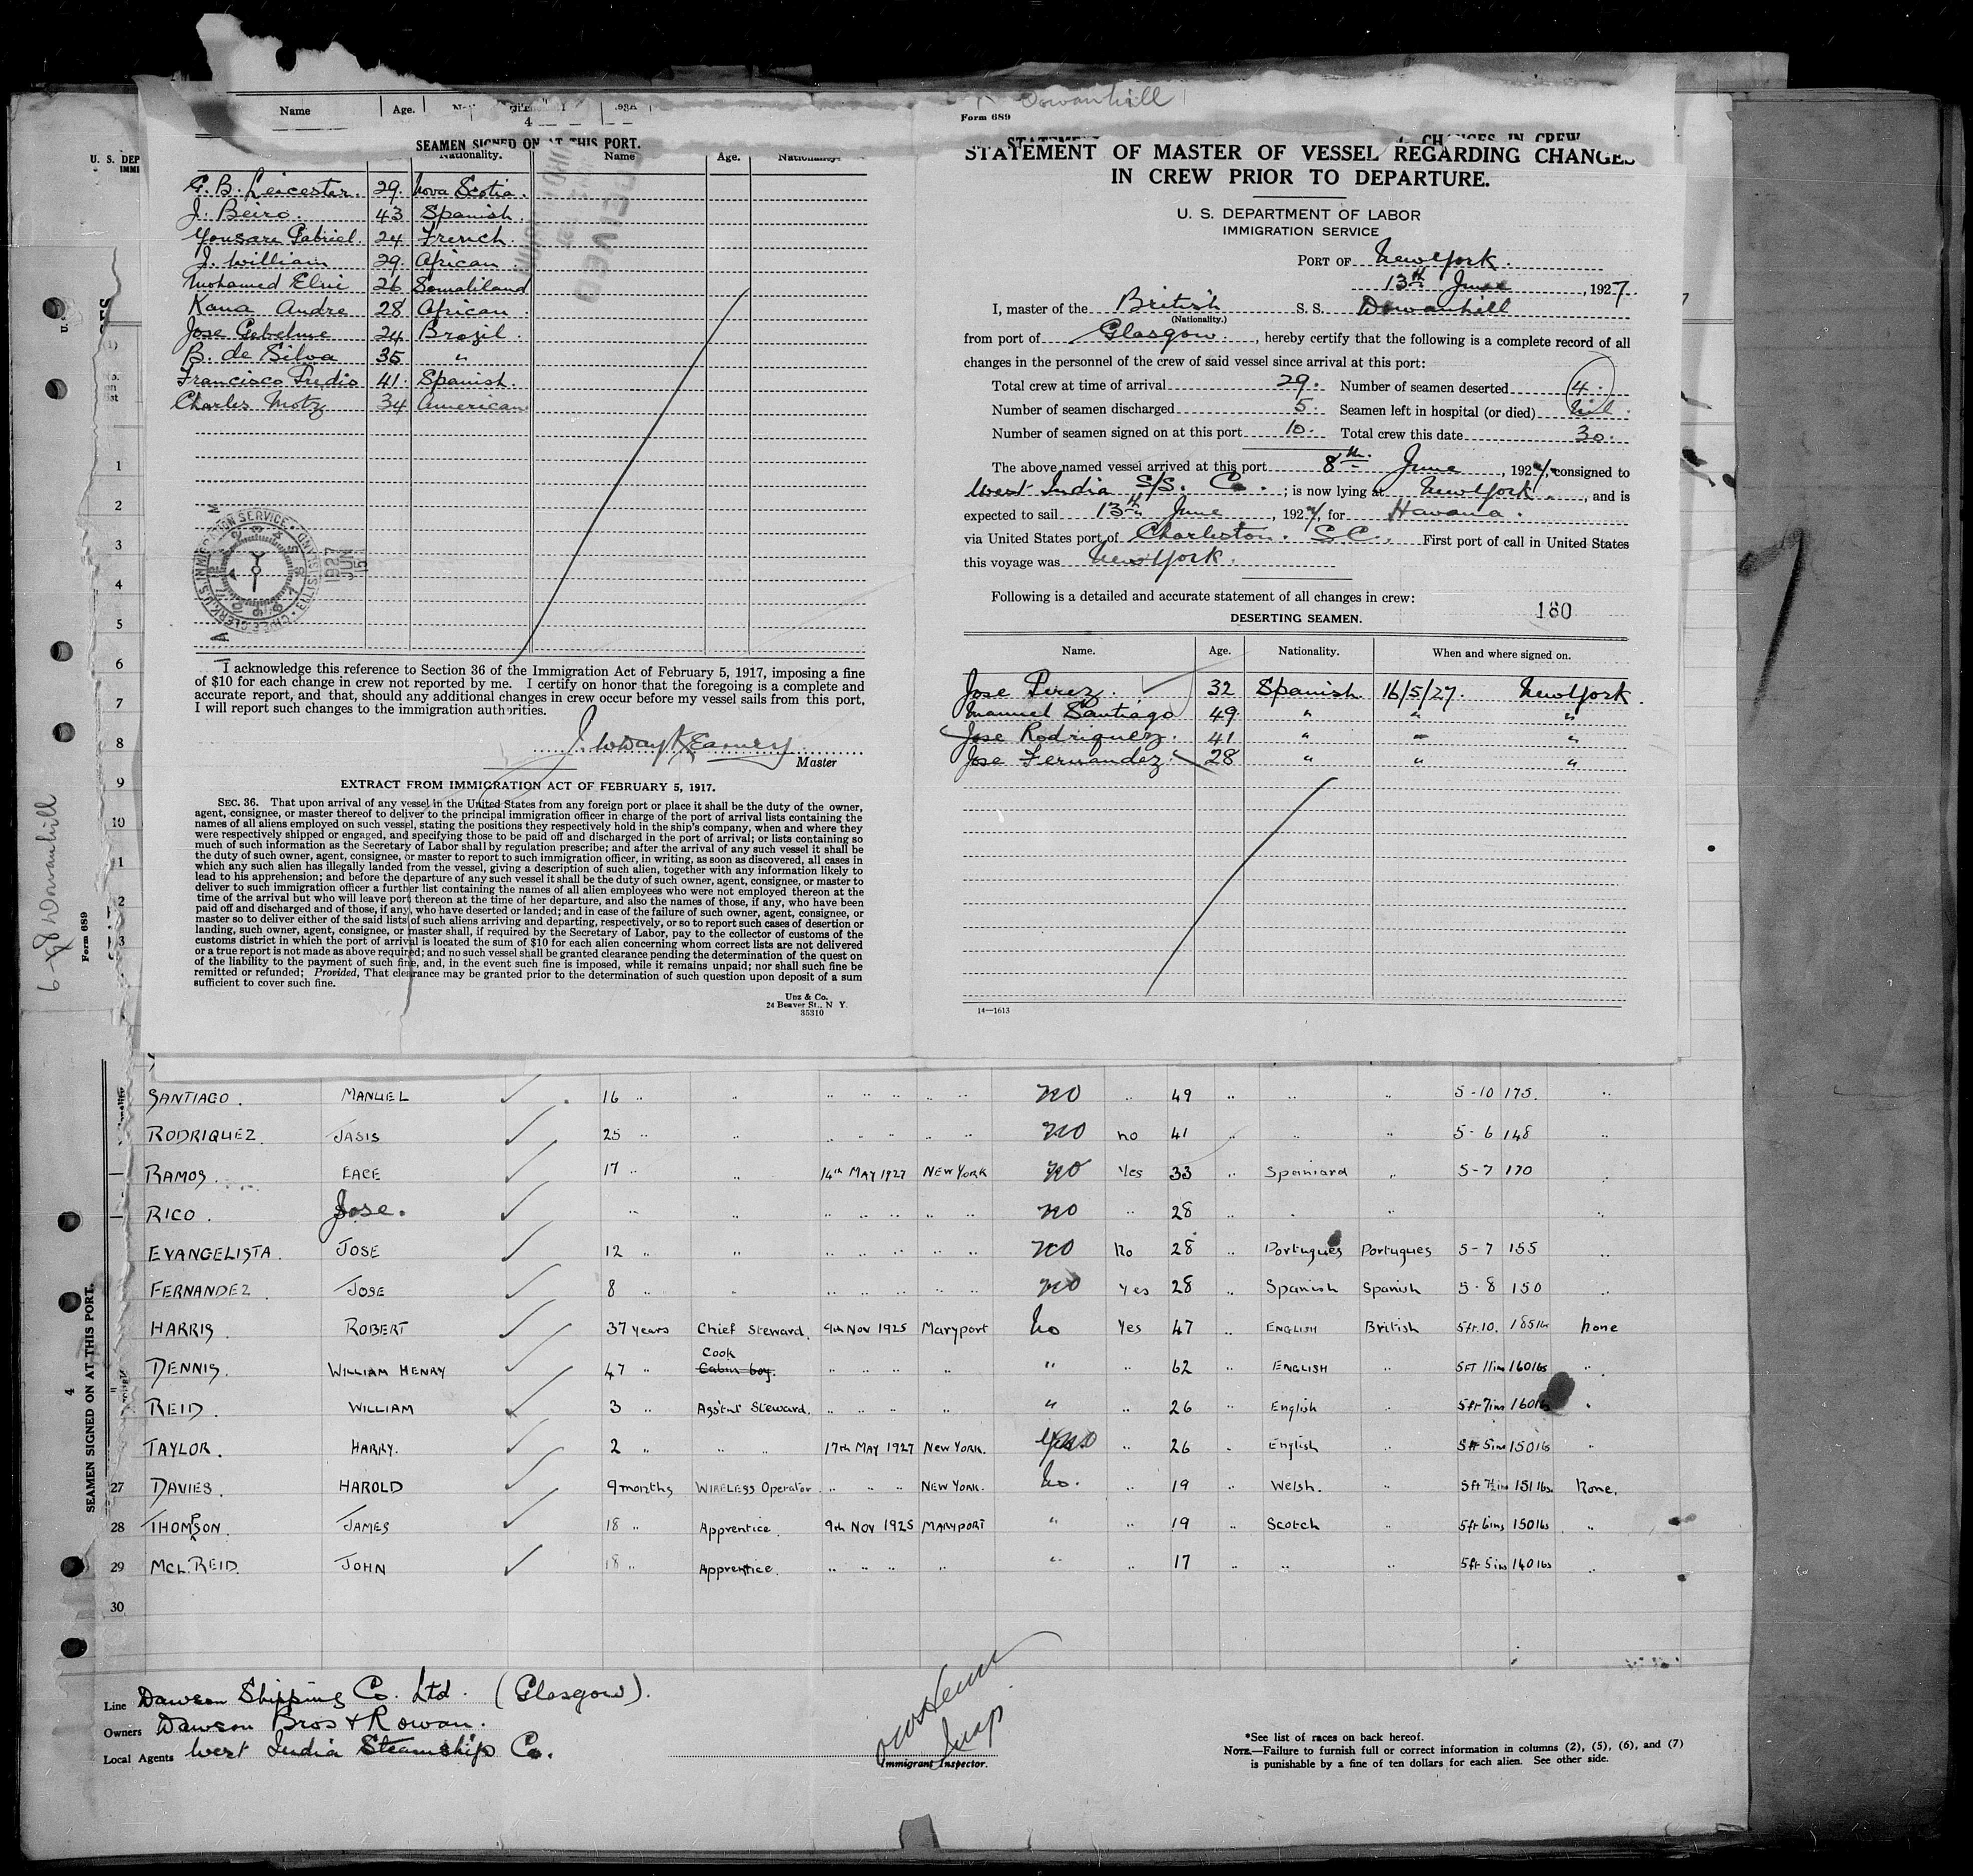 Name Age.
4
SEAMEN SIGNED ON AT THIS PORT.
Nationality. Name Age. Nationality.
G. B. Leicester. 29. Nova Scotia.
J. Beiro. 43 Spanish.
Yousare Gabriel. 24 French.
J. William 29. African.
Mohamed Elmi 26 Somaliland
Kana Andre 28 African.
Jose 24 Brazil.
B. de Silva 35 "
Francisco 41. Spanish.
Charles Motz 34 American
IMMIGRATION SERVICE
1927 JUN 15
I acknowledge this reference to Section 36 of the Immigration Act of February 5, 1917, imposing a fine
of $10 for each change in crew not reported by me. I certify on honor that the foregoing is a complete and
accurate report, and that, should any additional changes in crew occur before my vessel sails from this port,
I will report such changes to the immigration authorities.
Master
EXTRACT FROM IMMIGRATION ACT OF FEBRUARY 5, 1917.
SEC. 36. That upon arrival of any vessel in the United States from any foreign port or place it shall be the duty of the owner,
agent, consignee, or master thereof to deliver to the principal immigration officer in charge of the port of arrival lists containing the
names of all aliens employed on such vessel, stating the positions they respectively hold in the ship's company, when and where they
were respectively shipped or engaged, and specifying those to be paid off and discharged in the port of arrival; or lists containing so
much of such information as the Secretary of Labor shall by regulation prescribe; and after the arrival of any such vessel it shall be
the duty of such owner, agent, consignee, or master to report to such immigration officer, in writing, as soon as discovered, all cases in
which any such alien has illegally landed from the vessel, giving a description of such alien, together with any information likely to
lead to his apprehension; and before the departure of any such vessel it shall be the duty of such owner, agent, consignee, or master to
deliver to such immigration officer a further list containing the names of all alien employees who were not employed thereon at the
time of the arrival but who will leave port thereon at the time of her departure, and also the names of those, if any, who have been
paid off and discharged and of those, if any, who have deserted or landed; and in case of the failure of such owner, agent, consignee, or
master so to deliver either of the said lists of such aliens arriving and departing, respectively, or so to report such cases of desertion or
landing, such owner, agent, consignee, or master shall, if required by the Secretary of Labor, pay to the collector of customs of the
customs district in which the port of arrival is located the sum of $10 for each alien concerning whom correct lists are not delivered
or a true report is not made as above required; and no such vessel shall be granted clearance pending the determination of the quest on
of the liability to the payment of such fine, and, in the event such fine is imposed, while it remains unpaid; nor shall such fine be
remitted or refunded; Provided, That clearance may be granted prior to the determination of such question upon deposit of a sum
sufficient to cover such fine.
Unz & Co.
24 Beaver St., N Y.
35310
Dowanhill
Form 689
STATEMENT CHANGES IN CREW
STATEMENT OF MASTER OF VESSEL REGARDING CHANGES
IN CREW PRIOR TO DEPARTURE.
U. S. DEPARTMENT OF LABOR
IMMIGRATION SERVICE
PORT OF New York.
13th June, 1927.
I, master of the British S. S. Dowanhill
(Nationality.)
from port of Glasgow., hereby certify that the following is a complete record of all
changes in the personnel of the crew of said vessel since arrival at this port:
Total crew at time of arrival 29. Number of seamen deserted 4.
Number of seamen discharged 5. Seamen left in hospital (or died) nil.
Number of seamen signed on at this port 10. Total crew this date 30.
The above named vessel arrived at this port 8th June, 1927, consigned to
West India S/S. Co.; is now lying at New York., and is
expected to sail 13th June, 1927, for Havana.
via United States port of Charleston. S.C. First port of call in United States
this voyage was New York.
Following is a detailed and accurate statement of all changes in crew:
180
DESERTING SEAMEN.
Name. Age. Nationality. When and where signed on.
Jose Perez. 32 Spanish. 16/5/27. New York.
Manuel Santiago 49 " " "
Jose Rodriquez. 41 " " "
Jose Fernandez. 28 " " "
14—1613
U. S. DEP
IMMI
1
2
3
4
5
6
7
8
9
10
6-8 Dowanhill
Form 689
4
SEAMEN SIGNED ON AT THIS PORT.
SANTIAGO. MANUEL 16 " " " " " " " no " 49 " " " 5-10 175. "
RODRIQUEZ. JASIS 25 " " " " " " " no no 41 " " " 5-6 148 "
RAMOS LACE 17 " " 14th MAY 1927 NEW YORK no Yes 33 " Spaniard " 5-7 170 "
RICO. Jose. " " " " " " " no " 28 " " " "
EVANGELISTA. JOSE 12 " " " " " " " no No 28 " Portugues Portugues 5-7 155 "
FERNANDEZ. JOSE 8 " " " " " " " no Yes 28 " Spanish Spanish 5-8 150 "
HARRIS. ROBERT 37 years Chief Steward. 9th Nov 1925 Maryport No Yes 47 " ENGLISH British 5ft.10. 185lb None
DENNIS. WILLIAM HENRY 47 " Cook Cabin boy. " " " " " " 62 " ENGLISH " 5FT 11ins 160lbs "
REID. WILLIAM 3 " Ass'tnt Steward. " " " " " " 26 " English " 5ft 7ins 160lbs "
TAYLOR. HARRY. 2 " " " 17th MAY 1927 NEW YORK. no " 26 " English " 5ft 5ins 150lbs "
27 DAVIES. HAROLD 9 months WIRELESS Operator. " " " NEW YORK. No. " 19 " Welsh. " 5ft 7½ins 151lbs None.
28 THOMPSON. JAMES 18 " Apprentice. 9th NOV 1925 MARYPORT " " 19 " Scotch " 5ft 6ins 150lbs "
29 McL. REID. JOHN 18 " Apprentice. " " " " " " 17 " " " 5ft 5ins 140lbs "
30
Line Dawson Shipping Co. Ltd. (Glasgow).
Owners Dawson Bros & Rowan.
Local Agents West India Steamship Co.
Insp
Immigrant Inspector.
*See list of races on back hereof.
NOTE.—Failure to furnish full or correct information in columns (2), (5), (6), and (7)
is punishable by a fine of ten dollars for each alien. See other side.